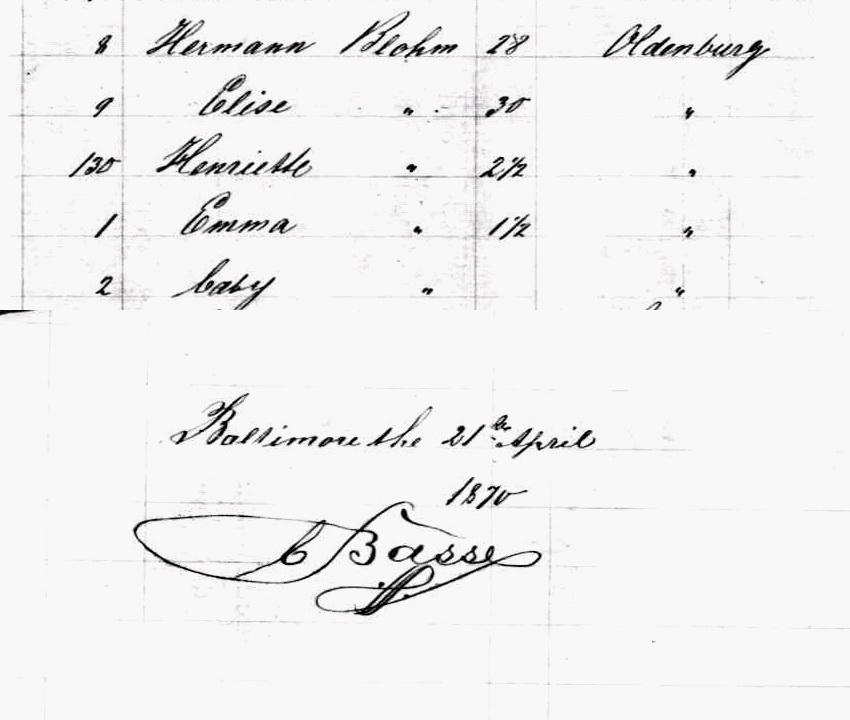 8 Hermann Blohm 28 Oldenburg
9 Elise " 30 "
130 Henriette " 2 1/2 "
1 Emma " 1 1/2 "
2 baby " "
Baltimore the 21th April
1870
C Basse